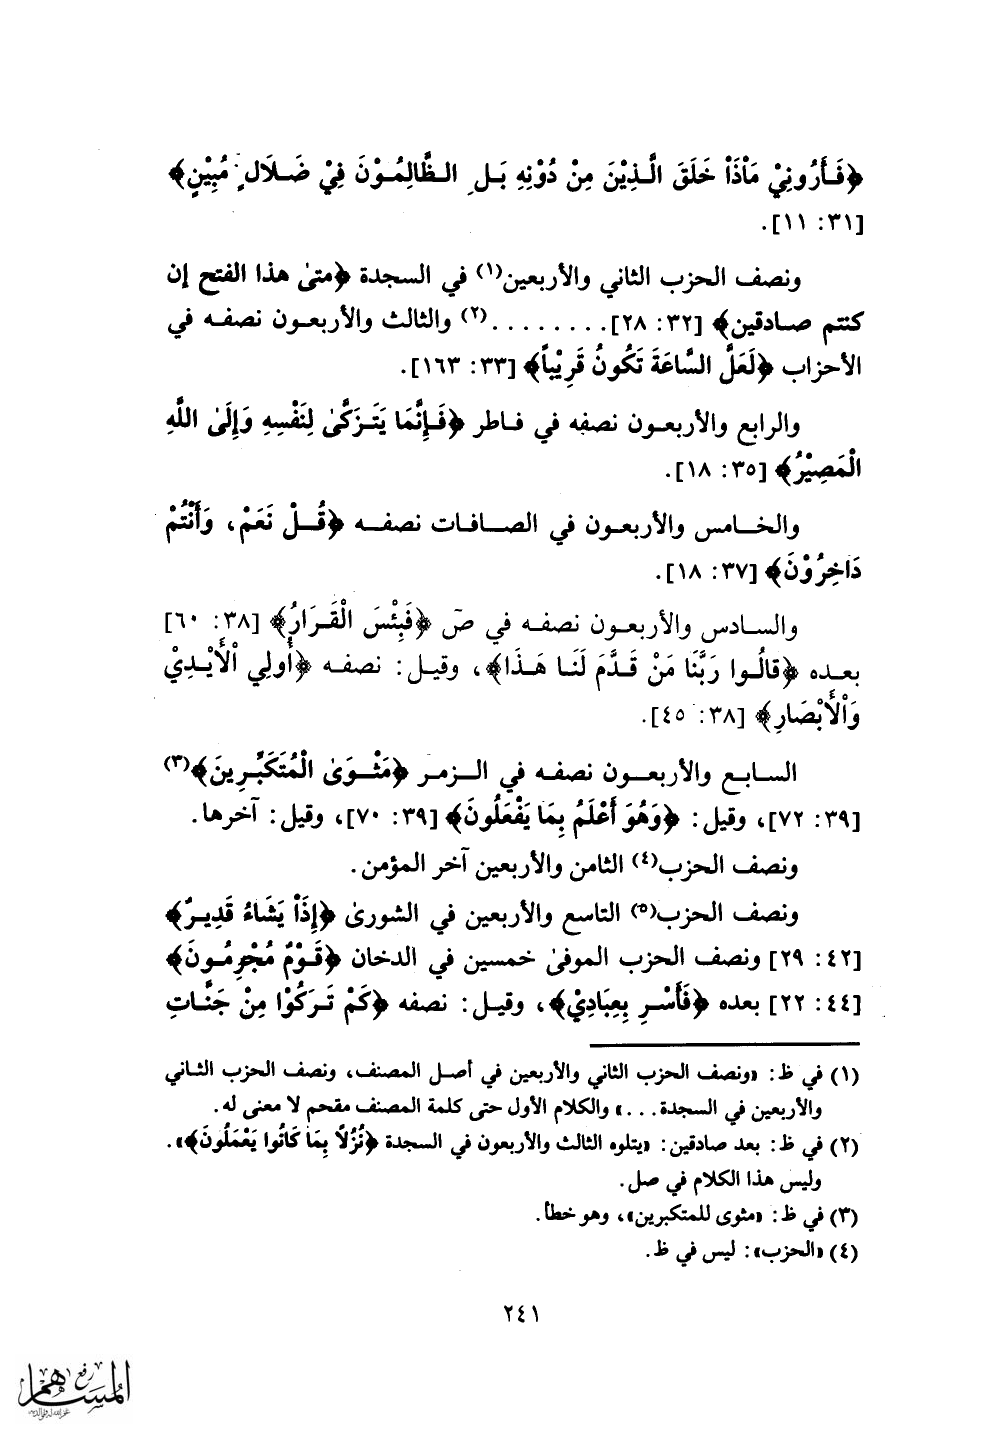 ﴿فَأَرُونِيْ مَاْذَاْ خَلَقَ الَّذِيْنَ مِنْ دُوْنِهِ بَلِ الظَّالِمُوْنَ فِيْ ضَلَالٍ مُبِيْنٍ﴾
[٣١: ١١].
ونصف الحزب الثاني والأربعين(١) في السجدة ﴿متىٰ هذا الفتح إن
كنتم صادقين﴾ [٣٢: ٢٨]. . . . . . . .(٢) والثالث والأربعون نصفه في
الأحزاب ﴿لَعَلَّ السَّاعَةَ تَكُونُ قَرِيْباً﴾ [٣٣: ١٦٣].
والرابع والأربعون نصفه في فاطر ﴿فَإِنَّمَا يَتَزَكَّىٰ لِنَفْسِهِ وَإِلَىٰ اللَّهِ
الْمَصِيْرُ﴾ [٣٥: ١٨].
والخامس والأربعون في الصافات نصفه ﴿قُلْ نَعَمْ، وَأَنْتُمْ
دَاخِرُوْنَ﴾ [٣٧: ١٨].
والسادس والأربعون نصفه في صۤ ﴿فَبِئْسَ الْقَرَارُ﴾ [٣٨: ٦٠]
بعده ﴿قالُوا رَبَّنَا مَنْ قَدَّمَ لَنَا هَذَا﴾، وقيل: نصفه ﴿أُولِي اْلأَيْدِيْ
وَاْلأَبْصَارِ﴾ [٣٨: ٤٥].
السابع والأربعون نصفه في الزمر ﴿مَثْوَىٰ الْمُتَكَبِّرِينَ﴾(٣)
[٣٩: ٧٢]، وقيل: ﴿وَهُوَ أَعْلَمُ بِمَا يَفْعَلُونَ﴾ [٣٩: ٧٠]، وقيل: آخرها.
ونصف الحزب(٤) الثامن والأربعين آخر المؤمن.
ونصف الحزب(٥) التاسع والأربعين في الشورىٰ ﴿إِذَاْ يَشَاءُ قَدِيرٌ﴾
[٤٢: ٢٩] ونصف الحزب الموفىٰ خمسين في الدخان ﴿قَوْمٌ مُجْرِمُونَ﴾
[٤٤: ٢٢] بعده ﴿فَأَسْرِ بِعِبَادِيْ﴾، وقيل: نصفه ﴿كَمْ تَرَكُوْا مِنْ جَنَّاتِ
(١) في ظ: «ونصف الحزب الثاني والأربعين في أصل المصنف، ونصف الحزب الثاني
والأربعين في السجدة. . .» والكلام الأول حتى كلمة المصنف مقحم لا معنى له.
(٢) في ظ: بعد صادقين: «يتلوه الثالث والأربعون في السجدة ﴿نُزُلاً بِمَا كَانُوا يَعْمَلُونَ﴾».
وليس هذا الكلام في صل.
(٣) في ظ: «مثوى للمتكبرين»، وهو خطأ.
(٤) «الحزب»: ليس في ظ.
٢٤١